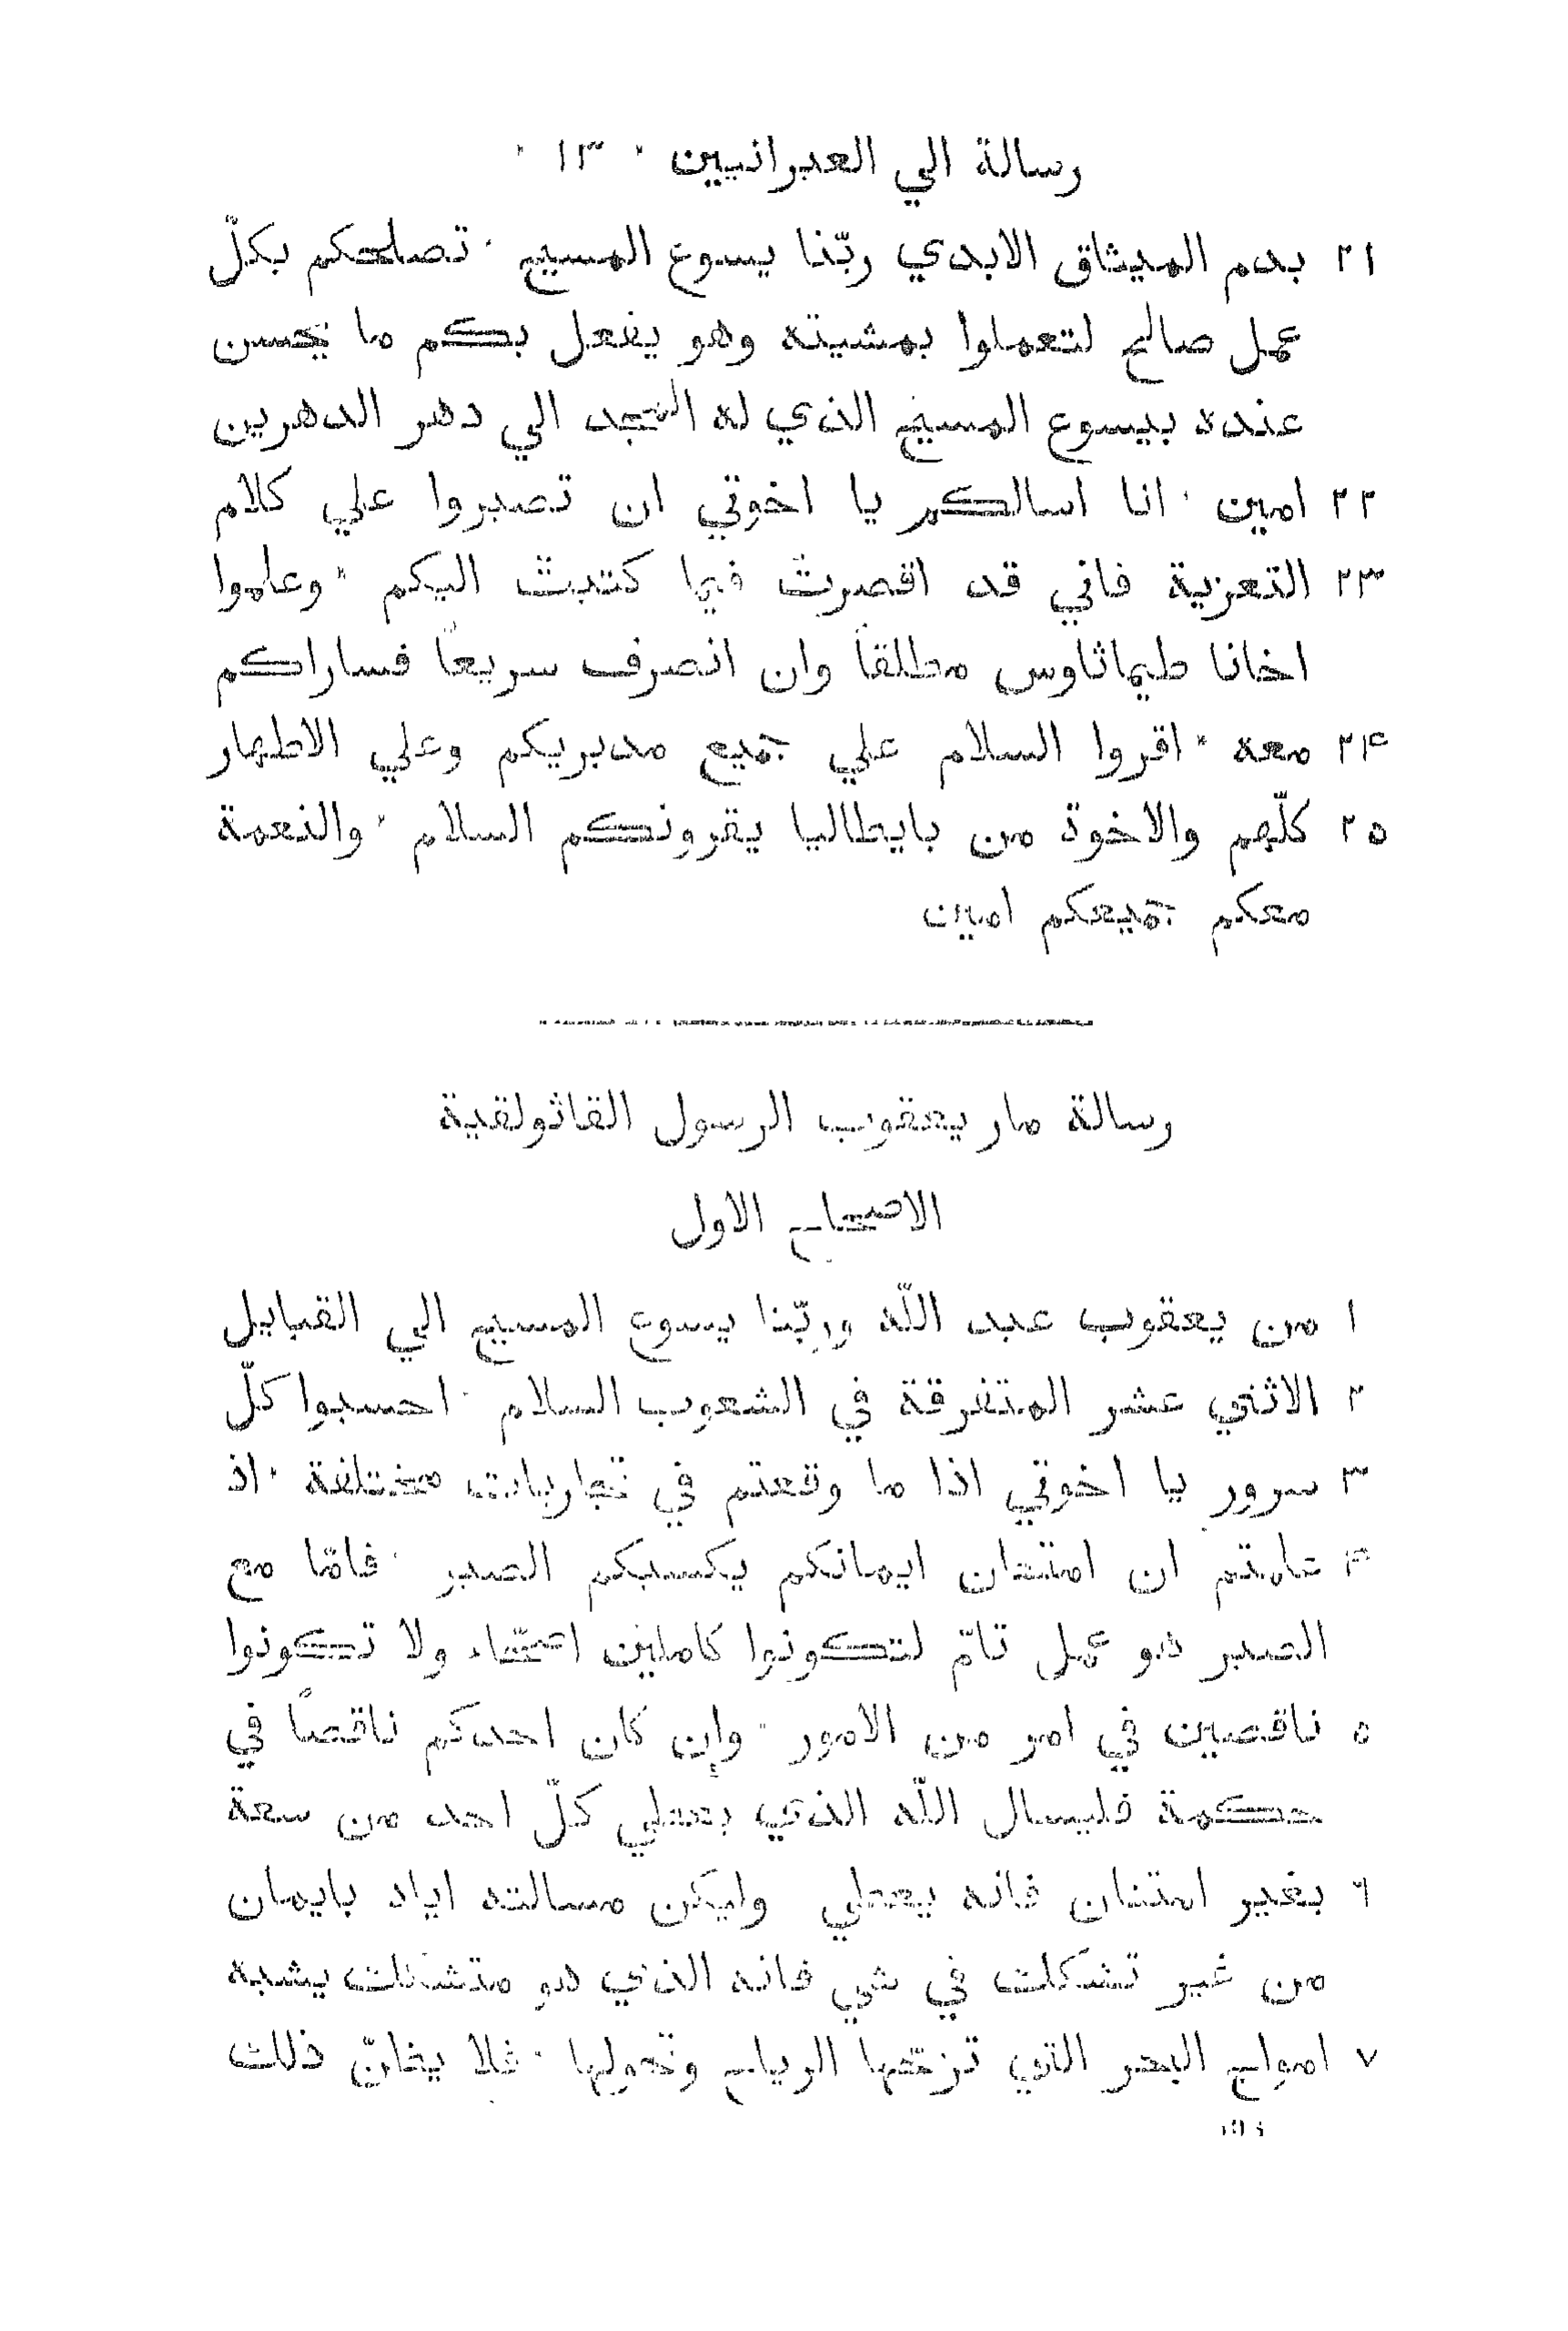 رسالة الي العبرانيين ٠ ١٣ ٠
٢١ بدم الميثاق الابدي ربّنا يسوع المسيح ٠ تصلحكم بكلّ
عمل صالح لتعملوا بمشيته وهو يفعل بكم ما يحسن
عنده بيسوع المسيح الذي له المجد الي دهر الدهرين
٢٢ امين ٠ انا اسالكم يا اخوتي ان تصبروا علي كلام
٢٣ التعزية فاني قد اقصرت فيما كتبت اليكم ٠ وعلموا
اخانا طيماثاوس مطلقاً وان انصرف سريعاً فساراكم
٢۴ معه ٠ اقروا السلام علي جميع مدبريكم وعلي الاطهار
٢٥ كلّهم والاخوة من بايطاليا يقرونكم السلام ٠ والنعمة
معكم جميعكم امين
رسالة مار يعقوب الرسول القاثولقية
الاصحاح الاول
١ من يعقوب عبد اللّه وربّنا يسوع المسيح الي القبايل
٢ الاثني عشر المتفرقة في الشعوب السلام ٠ احسبوا كلّ
٣ سرور يا اخوتي اذا ما وقعتم في تجاربات مختلفة ٠ اذ
۴ علمتم ان امتحان ايمانكم يكسبكم الصبر ٠ فامّا مع
الصبر هو عمل تامّ لتكونوا كاملين اصحّاء ولا تكونوا
٥ ناقصين في امر من الامور ٠ وإن كان احدكم ناقصاً في
حكمة فليسال اللّه الذي يعطي كلّ احد من سعة
٦ بغير امتنان فانه يعطي وليكن مسالته اياه بايمان
من غير تشكك في شي فانه الذي هو متشكك يشبه
٧ امواج البحر التي تزعّها الرياح وتحولها ٠ فلا يظنّ ذلك